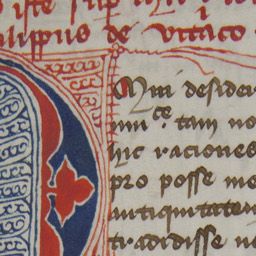 iste sup
alippus de vittaco
Omni desider
mi ce tam no
hic raciones
pro posse me
antiquitatem
tradidisse u